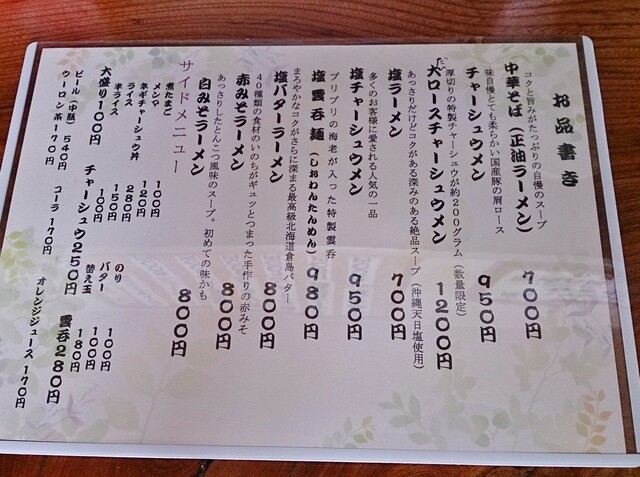 お品書き
コクと旨みがたっぷりの自慢のスープ
中華そば（正油ラーメン） 700円
味自慢とても柔らかい国産豚の肩ロース
チャーシュウメン 950円
厚切りの特製チャーシュウが約200グラム（数量限定）
大ロースチャーシュウメン 1200円
あっさりだけどコクがある深みのある絶品スープ（沖縄天日塩使用）
塩ラーメン 700円
多くのお客様に愛される人気の一品
塩チャーシュウメン 950円
プリプリの海老が入った特製雲呑
塩雲呑麺（しおわんたんめん） 980円
まろやかなコクがさらに深まる最高級北海道倉島バター
塩バターラーメン 800円
40種類の食材のいのちがギュッとつまった手作りの赤みそ
赤みそラーメン 800円
あっさりしたとんこつ風味のスープ。初めての味かも
白みそラーメン 800円
サイドメニュー
煮たまご 100円
メンマ 120円
ネギチャーシュウ丼 280円
ライス 150円
半ライス 100円
のり 100円
バター 100円
替え玉 180円
大盛り100円 チャーシュウ250円 雲呑280円
ビール（中瓶）540円 コーラ170円 オレンジジュース170円
ウーロン茶170円